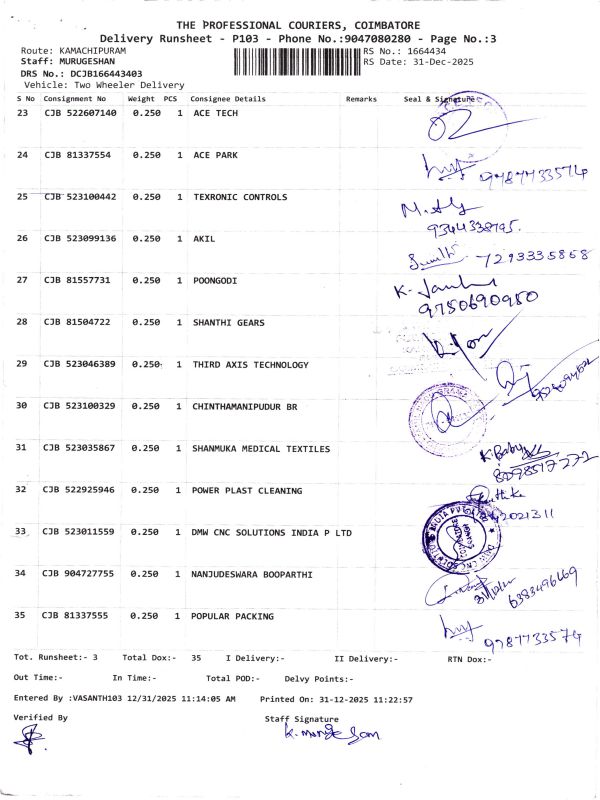 THE PROFESSIONAL COURIERS, COIMBATORE
Delivery Runsheet - P103 - Phone No.:9047080280 - Page No.:3
Route: KAMACHIPURAM RS No.: 1664434
Staff: MURUGESHAN RS Date: 31-Dec-2025
DRS No.: DCJB166443403
Vehicle: Two Wheeler Delivery
S No Consignment No Weight PCS Consignee Details Remarks Seal & Signature
23 CJB 522607140 0.250 1 ACE TECH
24 CJB 81337554 0.250 1 ACE PARK
9787733574
25 CJB 523100442 0.250 1 TEXRONIC CONTROLS
9344338795.
26 CJB 523099136 0.250 1 AKIL
7293335868
27 CJB 81557731 0.250 1 POONGODI
9750690950
28 CJB 81504722 0.250 1 SHANTHI GEARS
29 CJB 523046389 0.250 1 THIRD AXIS TECHNOLOGY
30 CJB 523100329 0.250 1 CHINTHAMANIPUDUR BR
31 CJB 523035867 0.250 1 SHANMUKA MEDICAL TEXTILES
K. Baby
32 CJB 522925946 0.250 1 POWER PLAST CLEANING
33 CJB 523011559 0.250 1 DMW CNC SOLUTIONS INDIA P LTD
34 CJB 904727755 0.250 1 NANJUDESWARA BOOPARTHI
6383496169
35 CJB 81337555 0.250 1 POPULAR PACKING
9787733574
Tot. Runsheet:- 3 Total Dox:- 35 I Delivery:- II Delivery:- RTN Dox:-
Out Time:- In Time:- Total POD:- Delvy Points:-
Entered By :VASANTH103 12/31/2025 11:14:05 AM Printed On: 31-12-2025 11:22:57
Verified By Staff Signature